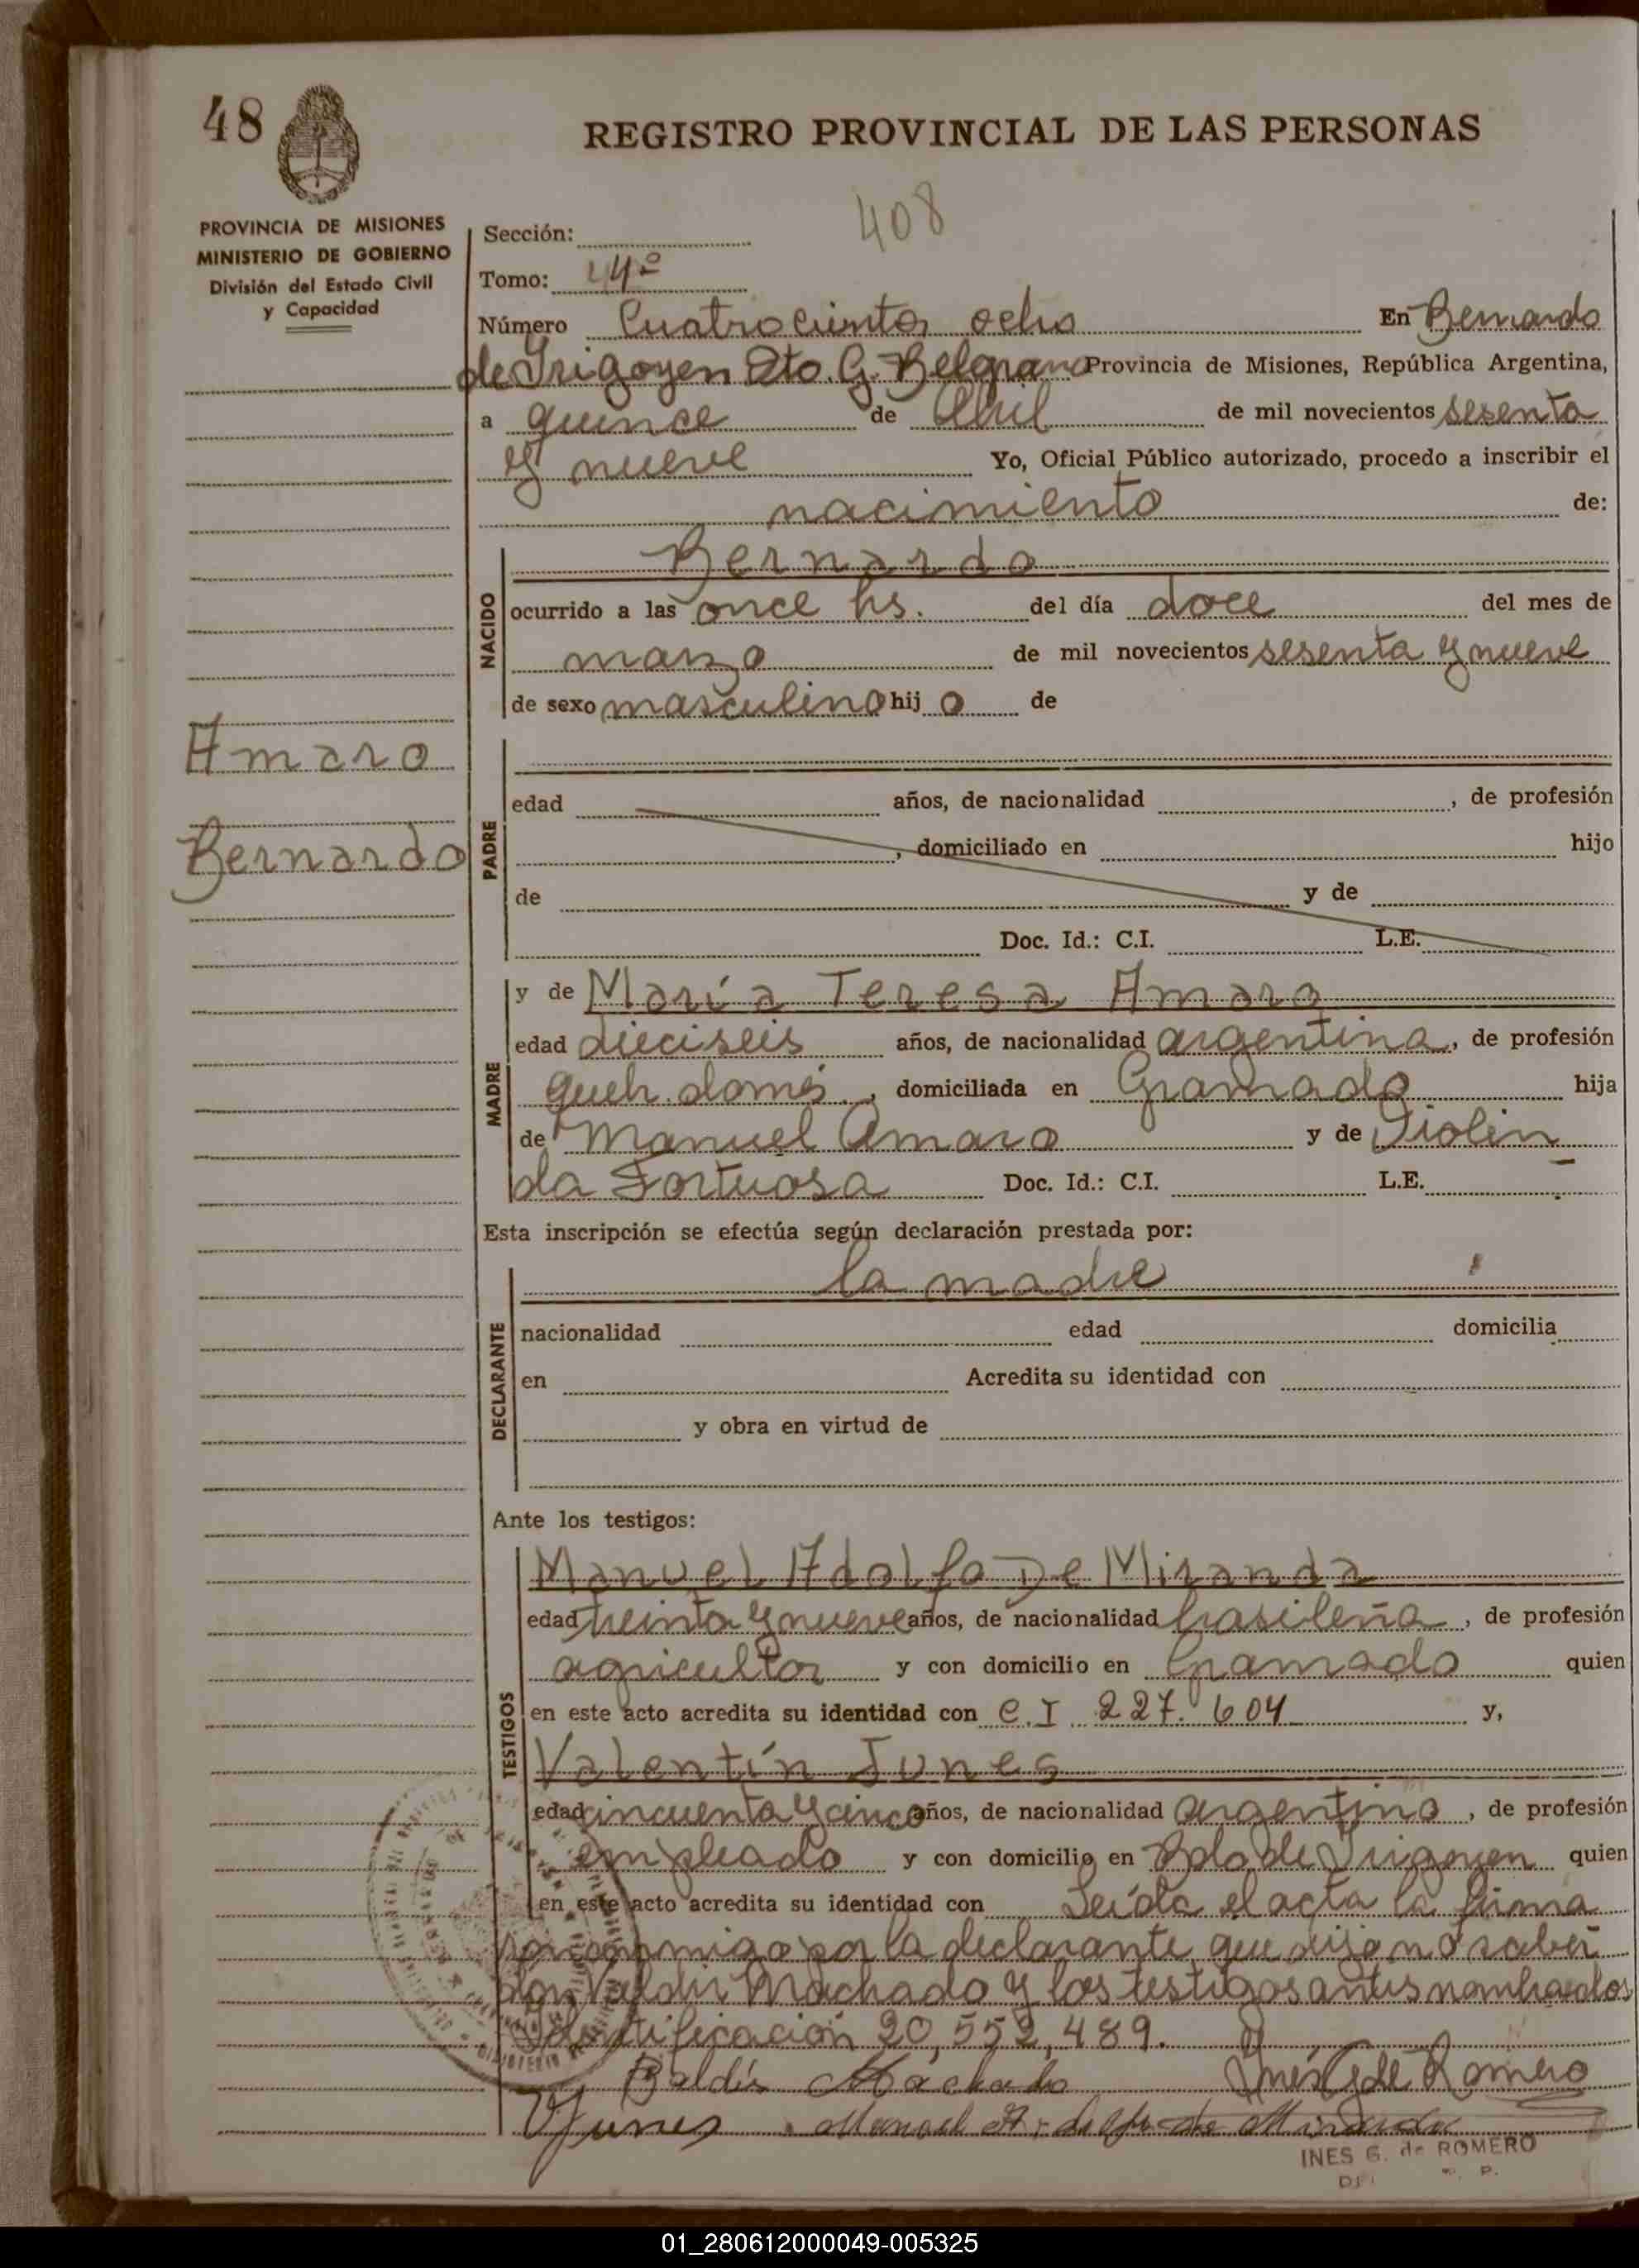 48
REGISTRO PROVINCIAL DE LAS PERSONAS
408
PROVINCIA DE MISIONES
MINISTERIO DE GOBIERNO
División del Estado Civil
y Capacidad
Sección:
Tomo: 44º
Número Cuatrocientos ocho En Bernardo
de Irigoyen Dto. G. Belgrano Provincia de Misiones, República Argentina,
a quince de Abril de mil novecientos sesenta
y nueve Yo, Oficial Público autorizado, procedo a inscribir el
nacimiento de:
NACIDO
Bernardo
ocurrido a las once hs. del día doce del mes de
marzo de mil novecientos sesenta y nueve
de sexo masculino hij o de
Amaro
Bernardo
PADRE
edad años, de nacionalidad , de profesión
, domiciliado en hijo
de y de
Doc. Id.: C.I. L.E.
MADRE
y de María Teresa Amaro
edad dieciseis años, de nacionalidad argentina, de profesión
queh. domés , domiciliada en Gramado hija
de Manuel Amaro y de Diolin
da Fortuosa Doc. Id.: C.I. L.E.
Esta inscripción se efectúa según declaración prestada por:
DECLARANTE
la madre
nacionalidad edad domicilia
en Acredita su identidad con
y obra en virtud de
Ante los testigos:
TESTIGOS
Manuel Adolfo De Miranda
edad treinta y nueve años, de nacionalidad brasileña, de profesión
agricultor y con domicilio en Gramado quien
en este acto acredita su identidad con C.I 227.604 y,
Valentín Junes
edad cincuenta y cinco años, de nacionalidad argentino, de profesión
empleado y con domicilio en Bdo de Irigoyen quien
en este acto acredita su identidad con Leída el acta la firma
conmigo por la declarante que dijo no saber
don Valdir Machado y los testigos antes nombrados
Identificación 20,552,489.
Baldir Machado Inés G de Romero
VJunes Manoel
INES G. de ROMERO
01_280612000049-005325